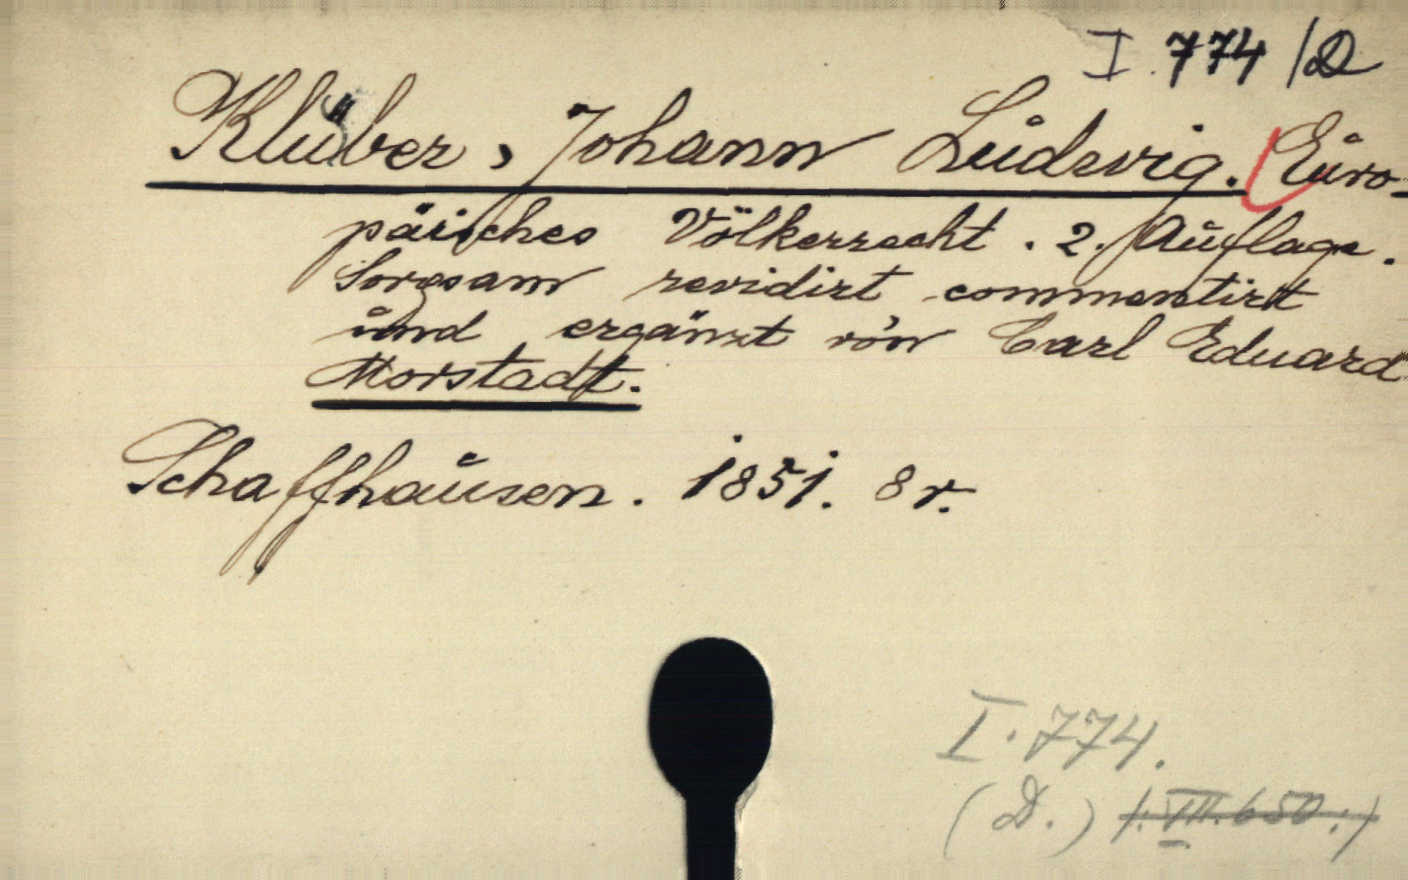 I. 774 /D
Klüber, Johann Ludwig. Euro-
päisches Völkerrecht. 2. Auflage.
Sorgsam revidirt commentirt
und ergänzt von Carl Eduard
Morstadt.
Schaffhausen. 1851. 8r.
I. 774.
(D.) /. VII. 650. /